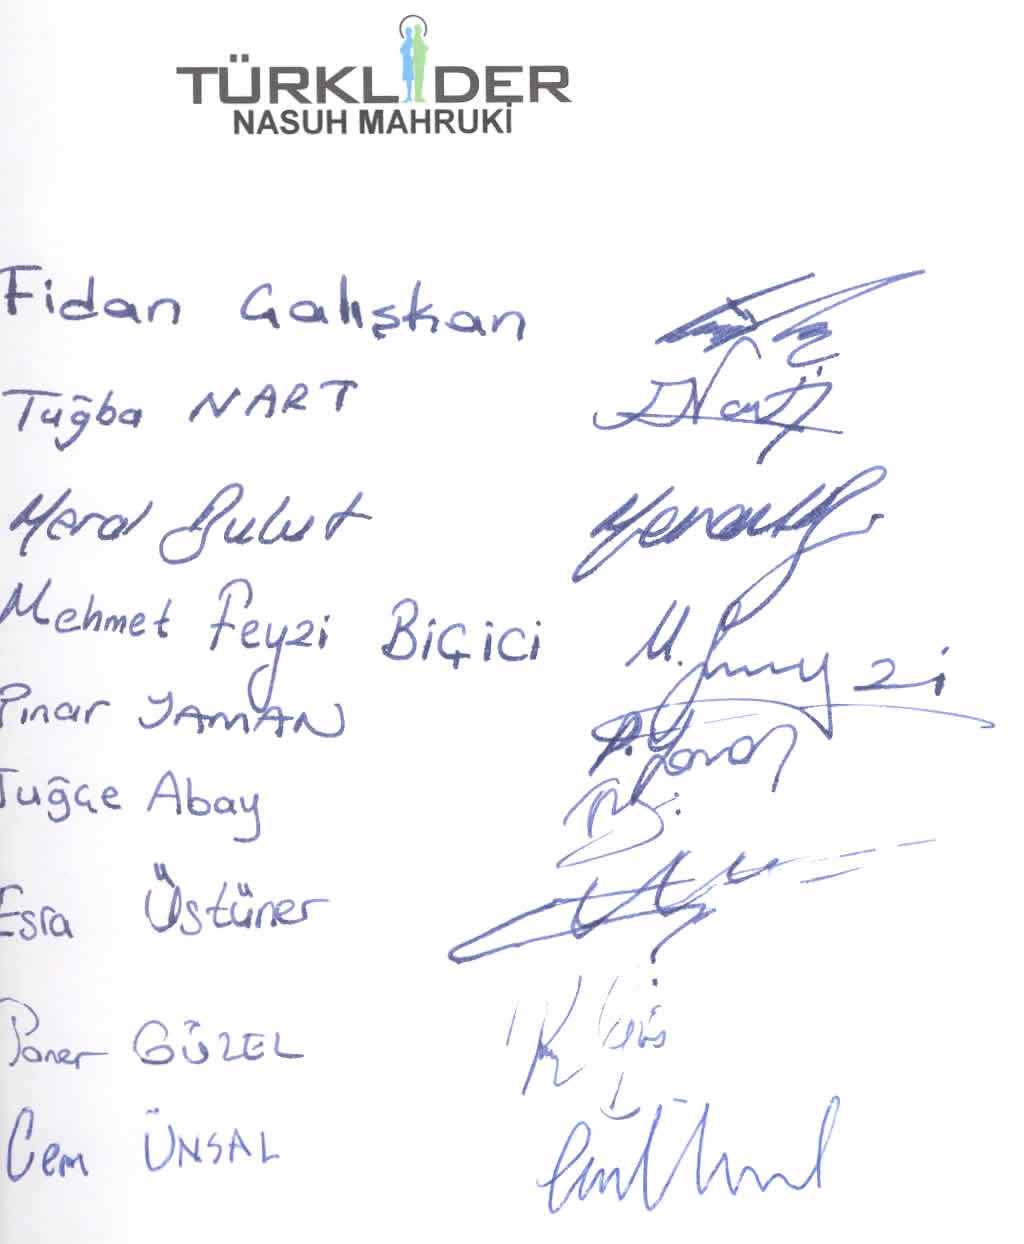 TÜRKLİDER
NASUH MAHRUKİ
Fidan Çalışkan
Tuğba NART
Meral Bulut
Mehmet Feyzi BİÇİCİ
M. Feyzi
Pınar YAMAN
Tuğçe Abay
Esra Üstüner
Taner GÜZEL
Cem ÜNSAL